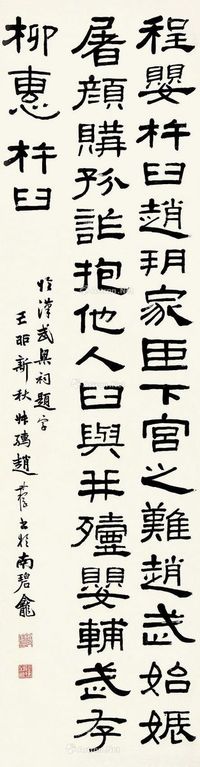 程嬰杵臼趙朔家臣下宮之難趙武始娠
屠顏購孤詐抱他人臼與并殪嬰輔武存
柳惠 杵臼
臨漢武梁祠題字
新秋叔孺趙書於南碧龕